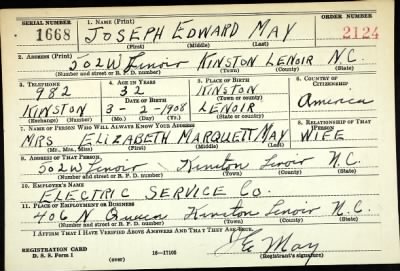 SERIAL NUMBER 1. NAME (Print) ORDER NUMBER
1668 JOSEPH EDWARD MAY 2124
(First) (Middle) (Last)
2. ADDRESS (Print)
502 W Lenoir KINSTON LENOIR N.C.
(Number and street or R. F. D. number) (Town) (County) (State)
3. TELEPHONE 4. AGE IN YEARS 5. PLACE OF BIRTH 6. COUNTRY OF CITIZENSHIP
982 32 KINSTON
DATE OF BIRTH (Town or county)
KINSTON 3-2-1908 LENOIR America
(Exchange) (Number) (Mo.) (Day) (Yr.) (State or country)
7. NAME OF PERSON WHO WILL ALWAYS KNOW YOUR ADDRESS 8. RELATIONSHIP OF THAT PERSON
MRS ELIZABETH MARQUETT MAY WIFE
(Mr., Mrs., Miss) (First) (Middle) (Last)
9. ADDRESS OF THAT PERSON
502 W Lenoir Kinston Lenoir N.C.
(Number and street or R. F. D. number) (Town) (County) (State)
10. EMPLOYER'S NAME
ELECTRIC SERVICE CO.
11. PLACE OF EMPLOYMENT OR BUSINESS
406 N Queen Kinston Lenoir N.C.
(Number and street or R. F. D. number) (Town) (County) (State)
I AFFIRM THAT I HAVE VERIFIED ABOVE ANSWERS AND THAT THEY ARE TRUE.
REGISTRATION CARD
D. S. S. Form 1 16-17105 May
(Registrant's signature)